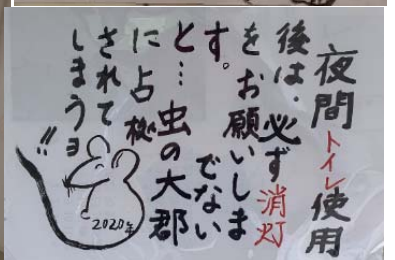 夜間トイレ使用
後は、必ず消灯
をお願いしま
す。でない
と…虫の大郡
に占拠
されて
しまうョ
!!
2020年